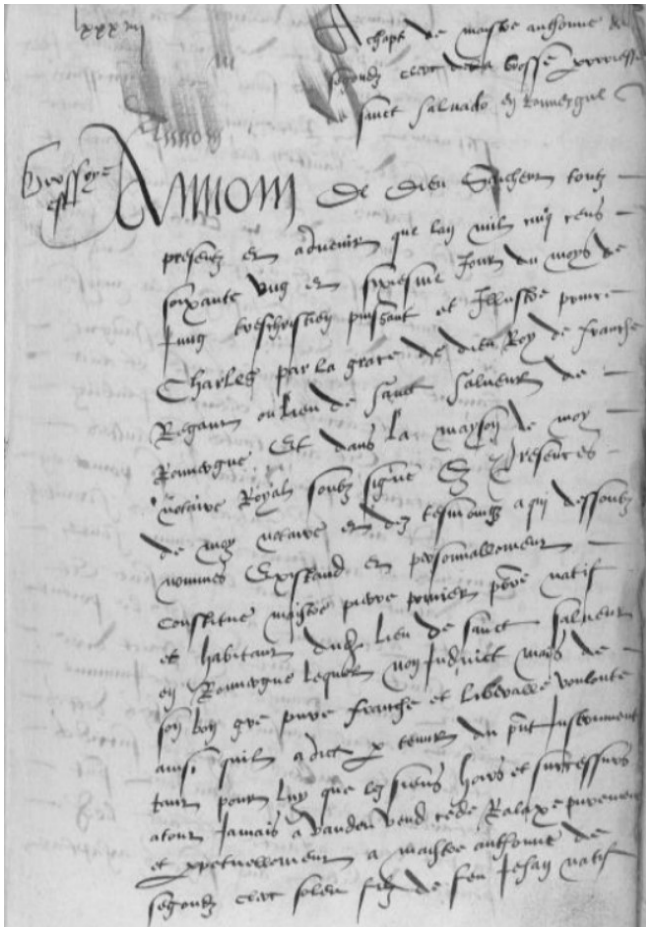 lxxxiij
Achapt de maistre anthonne de
segondz clerc de la bosse
de sanct salvado en Rouergue
Grossoye
est
Annom
Au nom de dieu Saichent toutz
presentz et advenir que lan mil cinq cens
soixante ung et sixiesme Jour du moys de
Juing treschristien puissant et Illustre prince
Charles par la grace de dieu Roy de franche
Regnant au lieu de sanct salveur de
Rouergue Et dans la mayson de moy
notaire Royal soubz signe En presences
de moy notaire et des tesmoingz a qui dessoubz
nommes Exystand et personnallement
constitue maistre pierre premier pbre natif
et habitant dudit lieu de sanct salveur
en Rouergue lequel non Induict mais de
son bon gre pure franche et liberalle voulonte
ainsi quil a dict p teneur du pnt Instrument
tant pour luy que les siens hoirs et successurs
atout Jamais a vandeu vend cede Ralaxe purement
et ppetuellement a maistre anthonne de
segondz clerc solen filz de feu Jehan natif